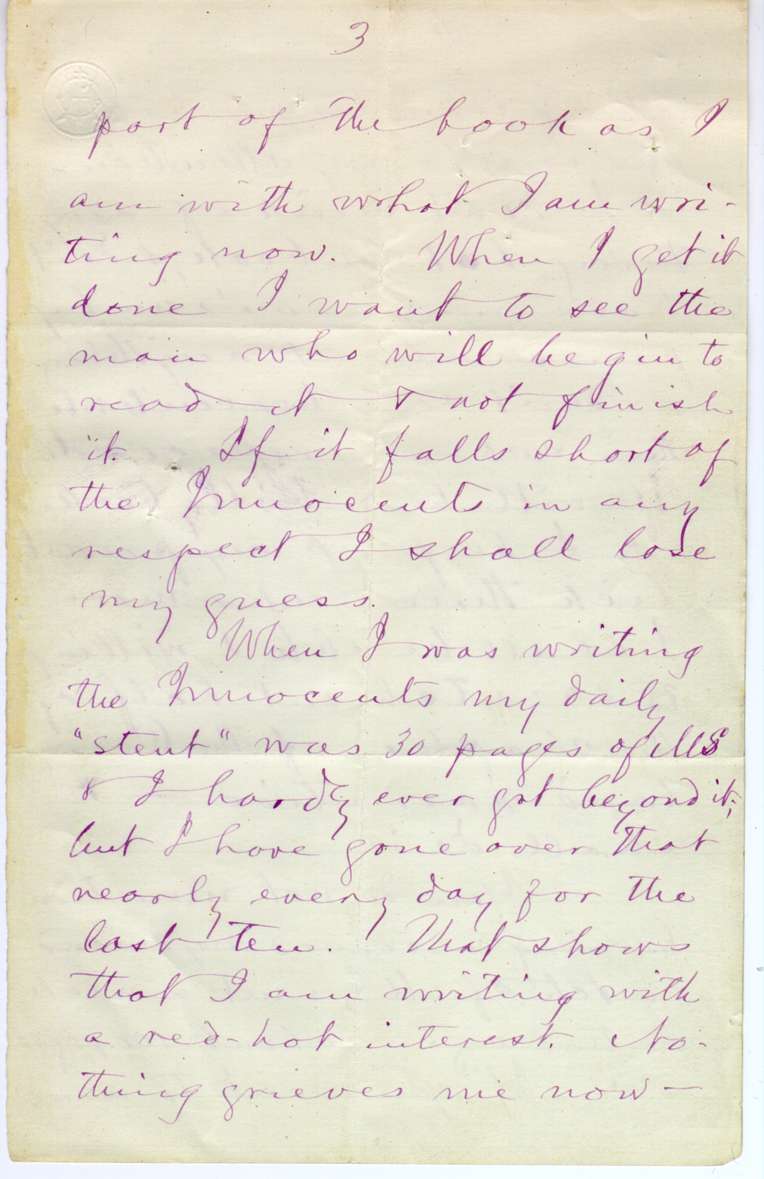 3
part of the book as I
am with what I am wri-
ting now. When I get it
done I want to see the
man who will begin to
read it & not finish
it. If it falls short of
the Innocents in any
respect I shall lose
my guess.
When I was writing
the Innocents my daily
"stent" was 30 pages of MS
& I hardly ever got beyond it;
but I have gone over that
nearly every day for the
last ten. That shows
that I am writing with
a red-hot interest. No-
thing grieves me now—